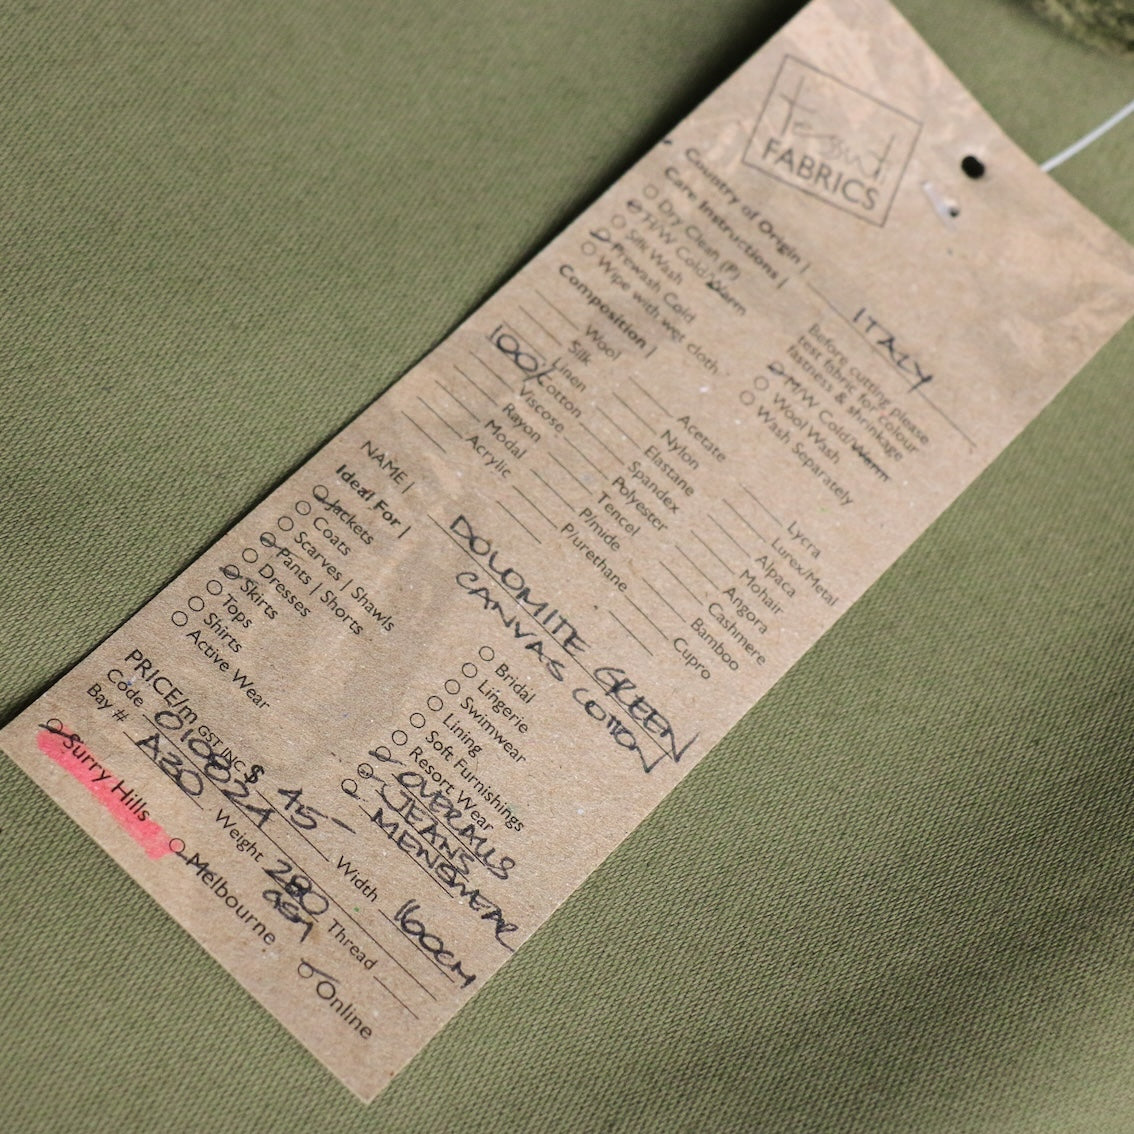 tessuti
FABRICS
Country of Origin | ITALY
Care Instructions |
Dry Clean (P)
H/W Cold/Warm
Silk Wash
Prewash Cold
Wipe with wet cloth
Before cutting please
test fabric for colour
fastness & shrinkage
M/W Cold/Warm
Wool Wash
Wash Separately
Composition |
Wool
Silk
Linen
100% Cotton
Viscose
Rayon
Modal
Acrylic
Acetate
Nylon
Elastane
Spandex
Polyester
Tencel
P/mide
P/urethane
Lycra
Lurex/Metal
Alpaca
Mohair
Angora
Cashmere
Bamboo
Cupro
NAME | DOLOMITE GREEN
CANVAS COTTON
Ideal For |
Jackets
Coats
Scarves | Shawls
Pants | Shorts
Dresses
Skirts
Tops
Shirts
Active Wear
Bridal
Lingerie
Swimwear
Lining
Soft Furnishings
Resort Wear
OVERALLS
JEANS
MENSWEAR
PRICE/m GST INC $ 45- Width 160CM
Code 010824 Weight 280 GSM Thread
Bay # A20
Surry Hills
Melbourne
Online